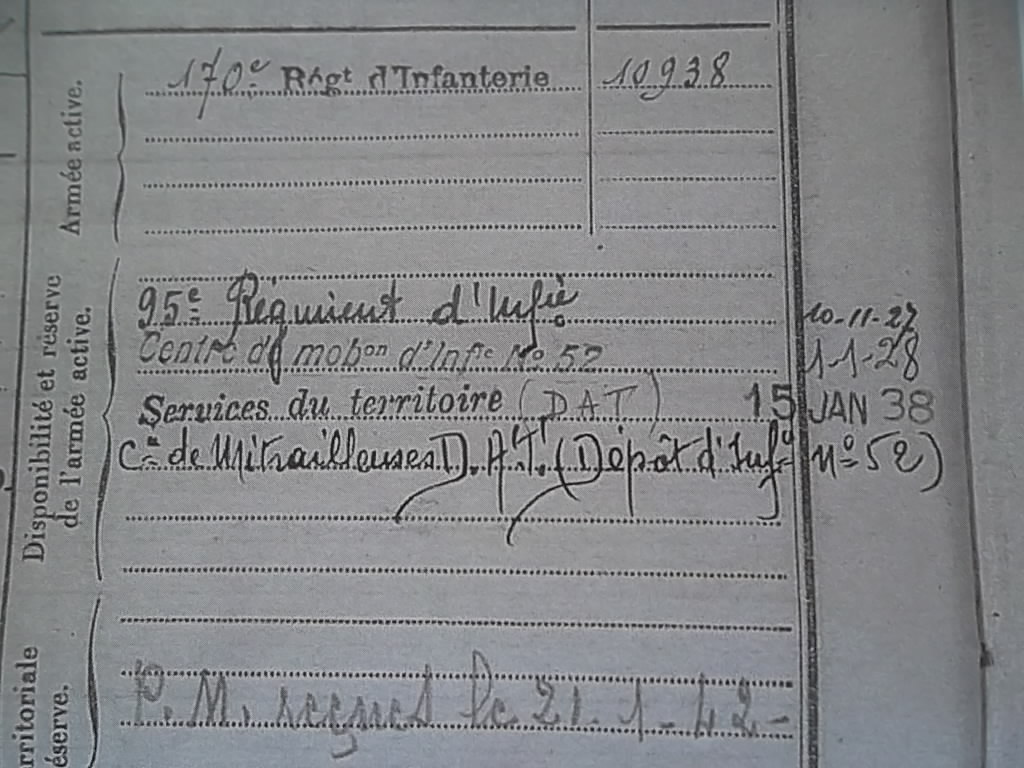 Armée active.
170e Régt d'Infanterie 10938
Disponibilité et réserve
de l'armée active.
95e Régiment d'Infie 10-11-27
Centre de mobon d'Infie No 52 1-1-28
Services du territoire (DAT) 15 JAN 38
Cie de Mitrailleuses D.A.T. (Dépôt d'Infie no 52)
rritoriale
éserve.
P.M. reçues le 21-1-42-